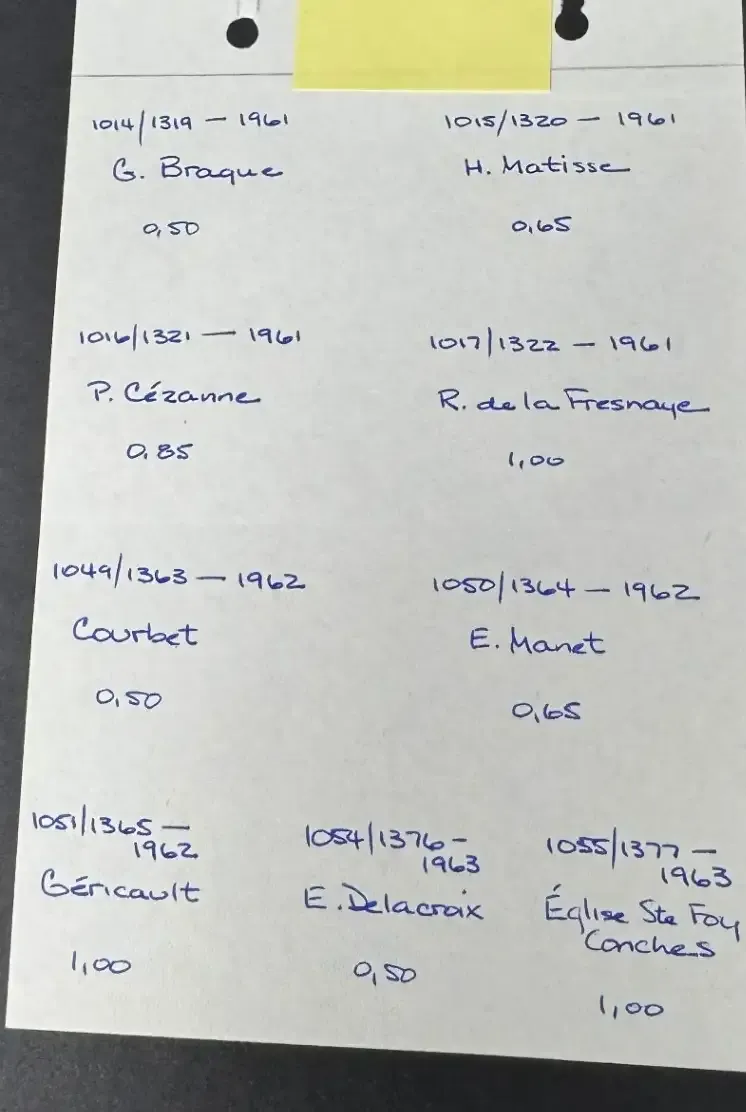 1014/1319 — 1961
G. Braque
0,50
1015/1320 — 1961
H. Matisse
0,65
1016/1321 — 1961
P. Cézanne
0,85
1017/1322 — 1961
R. de la Fresnaye
1,00
1049/1363 — 1962
Courbet
0,50
1050/1364 — 1962
E. Manet
0,65
1051/1365 —
1962
Géricault
1,00
1054/1376 -
1963
E. Delacroix
0,50
1055/1377 —
1963
Église Ste Foy
Conches
1,00